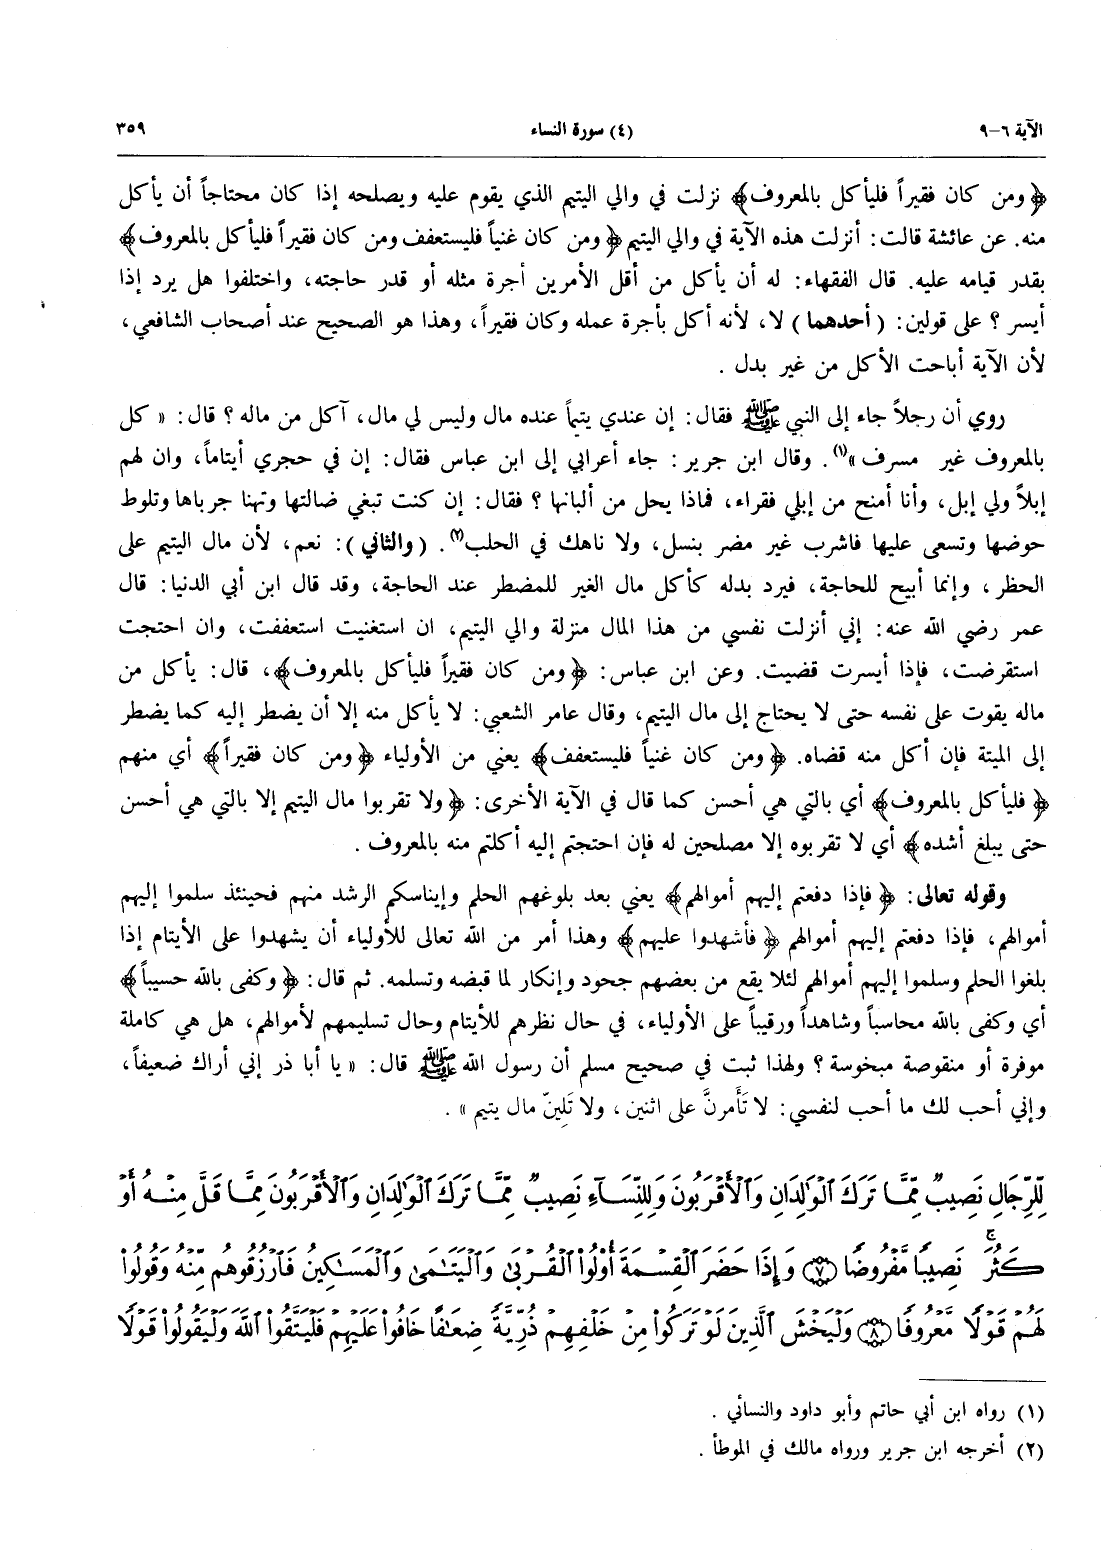 الآية ٦-٩ (٤) سورة النساء ٣٥٩
﴿ومن كان فقيراً فليأكل بالمعروف﴾ نزلت في والي اليتيم الذي يقوم عليه ويصلحه إذا كان محتاجاً أن يأكل
منه. عن عائشة قالت: أنزلت هذه الآية في والي اليتيم ﴿ومن كان غنياً فليستعفف ومن كان فقيراً فليأكل بالمعروف﴾
بقدر قيامه عليه. قال الفقهاء: له أن يأكل من أقل الأمرين أجرة مثله أو قدر حاجته، واختلفوا هل يرد إذا
أيسر ؟ على قولين: (أحدهما) لا، لأنه أكل بأجرة عمله وكان فقيراً، وهذا هو الصحيح عند أصحاب الشافعي،
لأن الآية أباحت الأكل من غير بدل .
روي أن رجلاً جاء إلى النبي ﷺ فقال: إن عندي يتيماً عنده مال وليس لي مال، آكل من ماله ؟ قال: « كل
بالمعروف غير مسرف »(١). وقال ابن جرير : جاء أعرابي إلى ابن عباس فقال: إن في حجري أيتاماً، وان لهم
إبلاً ولي إبل، وأنا أمنح من إبلي فقراء، فماذا يحل من ألبانها ؟ فقال: إن كنت تبغي ضالتها وتهنا جرباها وتلوط
حوضها وتسعى عليها فاشرب غير مضر بنسل، ولا ناهك في الحلب(٢). (والثاني): نعم، لأن مال اليتيم على
الحظر، وإنما أبيح للحاجة، فيرد بدله كأكل مال الغير للمضطر عند الحاجة، وقد قال ابن أبي الدنيا: قال
عمر رضي الله عنه: إني أنزلت نفسي من هذا المال منزلة والي اليتيم، ان استغنيت استعففت، وان احتجت
استقرضت، فإذا أيسرت قضيت. وعن ابن عباس: ﴿ومن كان فقيراً فليأكل بالمعروف﴾، قال: يأكل من
ماله يقوت على نفسه حتى لا يحتاج إلى مال اليتيم، وقال عامر الشعبي: لا يأكل منه إلا أن يضطر إليه كما يضطر
إلى الميتة فإن أكل منه قضاه. ﴿ومن كان غنياً فليستعفف﴾ يعني من الأولياء ﴿ومن كان فقيراً﴾ أي منهم
﴿فليأكل بالمعروف﴾ أي بالتي هي أحسن كما قال في الآية الأخرى: ﴿ولا تقربوا مال اليتيم إلا بالتي هي أحسن
حتى يبلغ أشده﴾ أي لا تقربوه إلا مصلحين له فإن احتجتم إليه أكلتم منه بالمعروف .
وقوله تعالى: ﴿فإذا دفعتم إليهم أموالهم﴾ يعني بعد بلوغهم الحلم وإيناسكم الرشد منهم فحينئذ سلموا إليهم
أموالهم، فإذا دفعتم إليهم أموالهم ﴿فأشهدوا عليهم﴾ وهذا أمر من الله تعالى للأولياء أن يشهدوا على الأيتام إذا
بلغوا الحلم وسلموا إليهم أموالهم لئلا يقع من بعضهم جحود وإنكار لما قبضه وتسلمه. ثم قال: ﴿وكفى بالله حسيباً﴾
أي وكفى بالله محاسباً وشاهداً ورقيباً على الأولياء، في حال نظرهم للأيتام وحال تسليمهم لأموالهم، هل هي كاملة
موفرة أو منقوصة مبخوسة ؟ ولهذا ثبت في صحيح مسلم أن رسول الله ﷺ قال: « يا أبا ذر إني أراك ضعيفاً،
وإني أحب لك ما أحب لنفسي: لا تَأَمرنَّ على اثنين، ولا تَلِينّ مال يتيم » .
لِّلرِّجَالِ نَصِيبٌ مِّمَّا تَرَكَ ٱلْوَٰلِدَانِ وَٱلْأَقْرَبُونَ وَلِلنِّسَآءِ نَصِيبٌ مِّمَّا تَرَكَ ٱلْوَٰلِدَانِ وَٱلْأَقْرَبُونَ مِمَّا قَلَّ مِنْهُ أَوْ
كَثُرَ ۚ نَصِيبًا مَّفْرُوضًا ﴿٧﴾ وَإِذَا حَضَرَ ٱلْقِسْمَةَ أُو۟لُوا۟ ٱلْقُرْبَىٰ وَٱلْيَتَٰمَىٰ وَٱلْمَسَٰكِينُ فَٱرْزُقُوهُم مِّنْهُ وَقُولُوا۟
لَهُمْ قَوْلًا مَّعْرُوفًا ﴿٨﴾ وَلْيَخْشَ ٱلَّذِينَ لَوْ تَرَكُوا۟ مِنْ خَلْفِهِمْ ذُرِّيَّةً ضِعَٰفًا خَافُوا۟ عَلَيْهِمْ فَلْيَتَّقُوا۟ ٱللَّهَ وَلْيَقُولُوا۟ قَوْلًا
(١) رواه ابن أبي حاتم وأبو داود والنسائي .
(٢) أخرجه ابن جرير ورواه مالك في الموطأ .